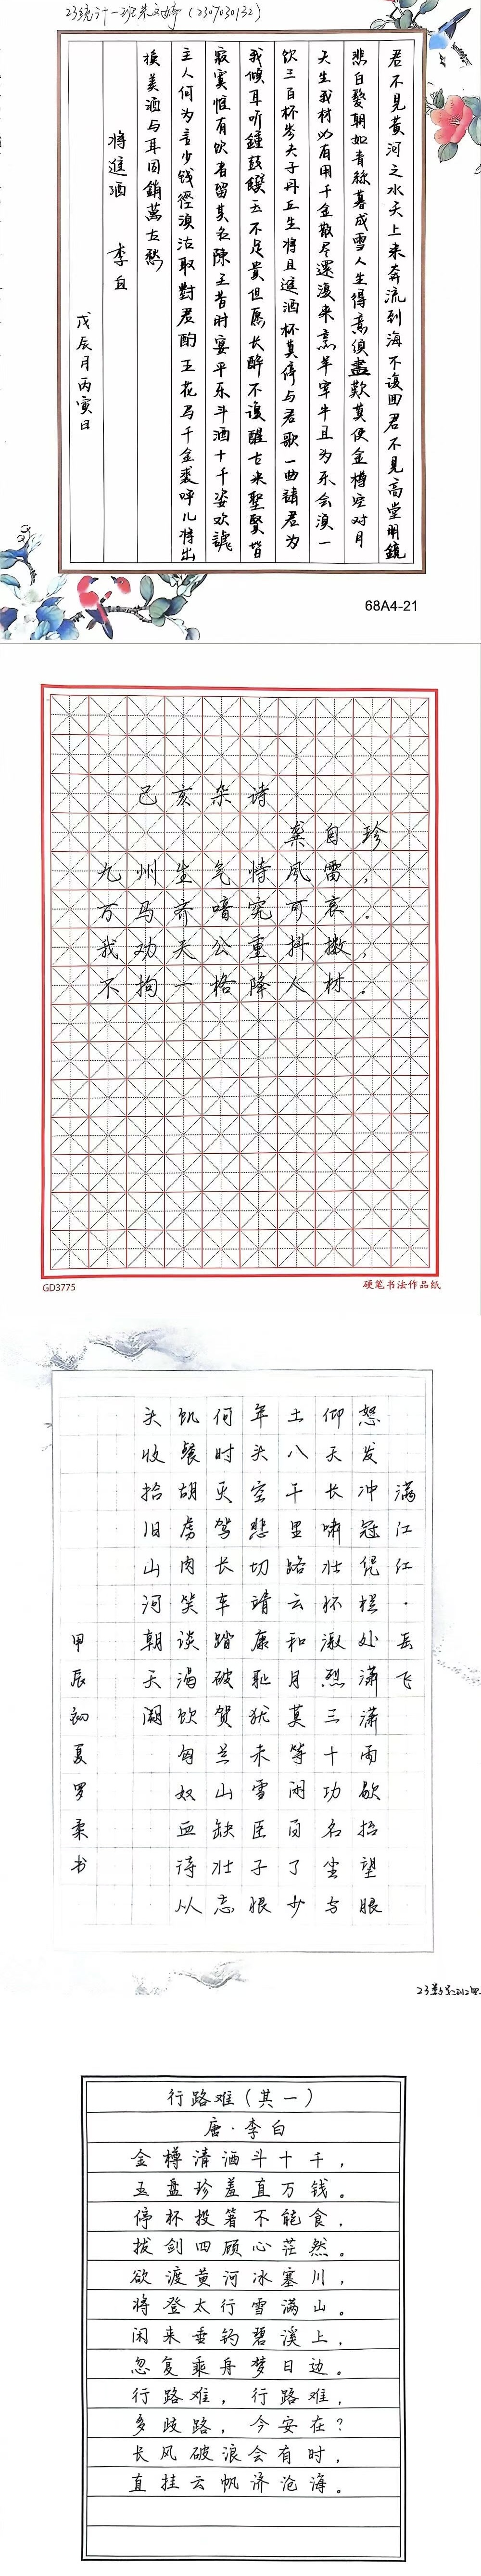 23统计一班朱文娇（2307030132）
君不見黃河之水天上来奔流到海不復囬君不見高堂明鏡
悲白髮朝如青絲暮成雪人生得意須盡歡莫使金樽空对月
天生我材必有用千金散尽還復来烹羊宰牛且为乐会須一
饮三百杯岑夫子丹丘生将且進酒杯莫停与君歌一曲請君为
我傾耳听鍾鼓饌玉不足貴但愿长醉不復醒古来聖賢皆
寂寞惟有饮者留其名陳王昔时宴平乐斗酒十千姿欢謔
主人何为言少钱徑須沽取對君酌五花马千金裘呼儿将出
换美酒与耳同銷萬古愁
将進酒 李白
戊辰月丙寅日
68A4-21
己亥杂诗
龚自珍
九州生气恃風雷，
万马齐喑究可哀。
我劝天公重抖擞，
不拘一格降人材。
GD3775
硬笔书法作品纸
满江红·岳飞
怒发冲冠凭栏处潇潇雨歇抬望眼
仰天长啸壮怀激烈三十功名尘与
土八千里路云和月莫等闲白了少
年头空悲切靖康耻犹未雪臣子恨
何时灭驾长车踏破贺兰山缺壮志
饥餐胡虏肉笑谈渴饮匈奴血待从
头收拾旧山河朝天阙
甲辰初夏罗柔书
行路难（其一）
唐·李白
金樽清酒斗十千，
玉盘珍羞直万钱。
停杯投箸不能食，
拔剑四顾心茫然。
欲渡黄河冰塞川，
将登太行雪满山。
闲来垂钓碧溪上，
忽复乘舟梦日边。
行路难，行路难，
多歧路，今安在？
长风破浪会有时，
直挂云帆济沧海。